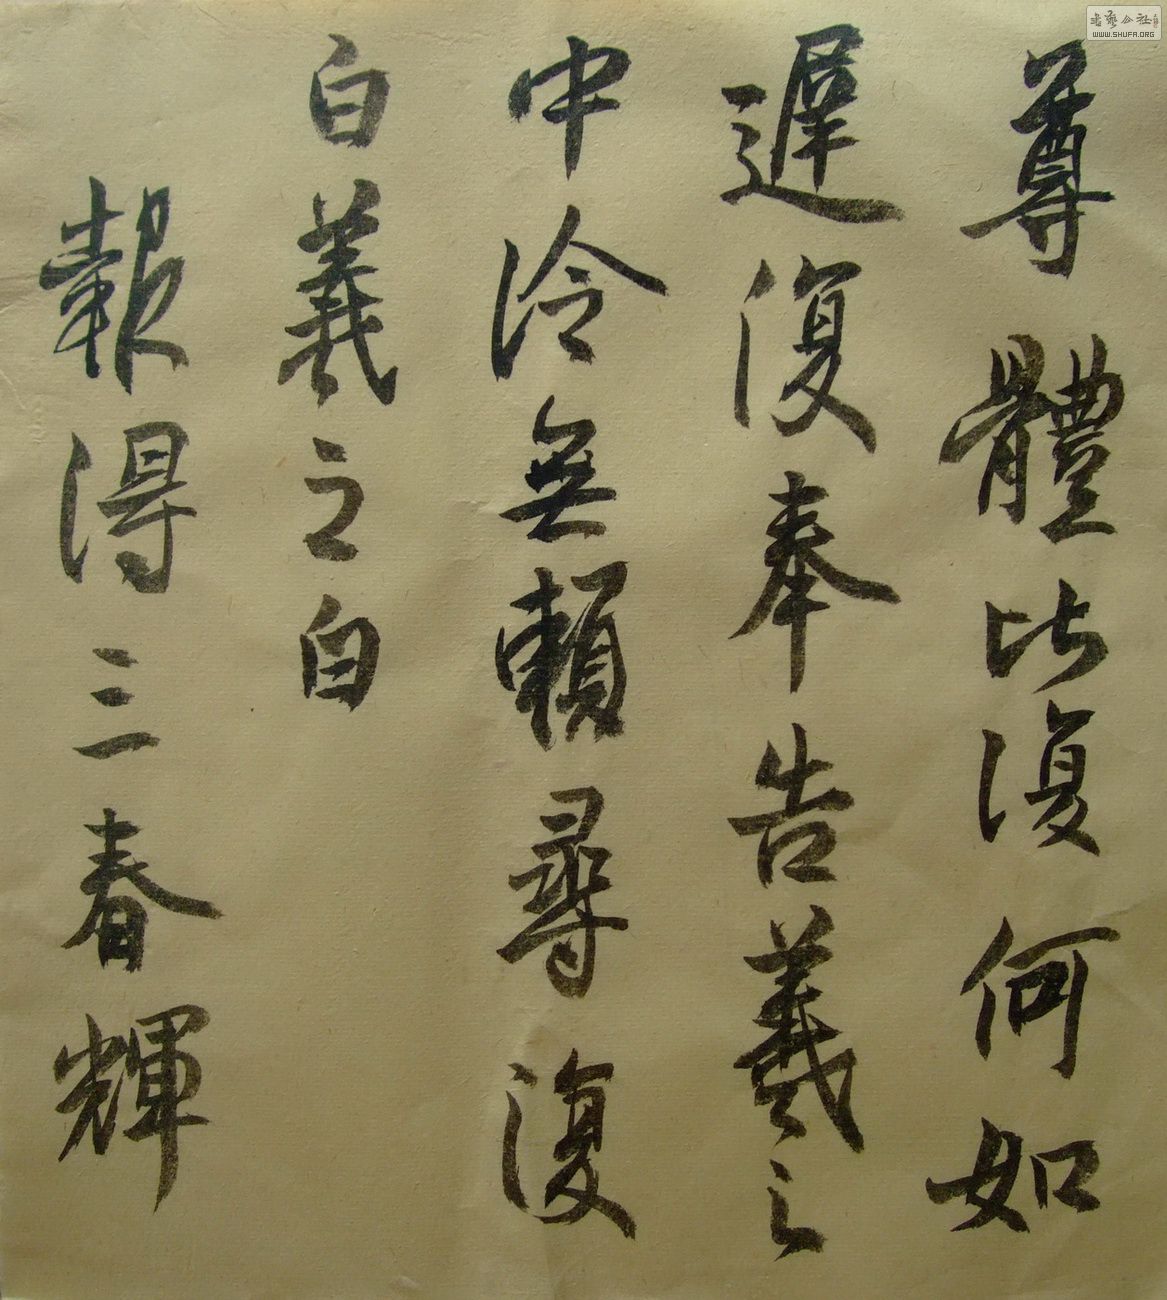 尊體比復何如
遲復奉告羲之
中冷無賴尋復
白羲之白
報得三春輝
書藝公社
WWW.SHUFA.ORG